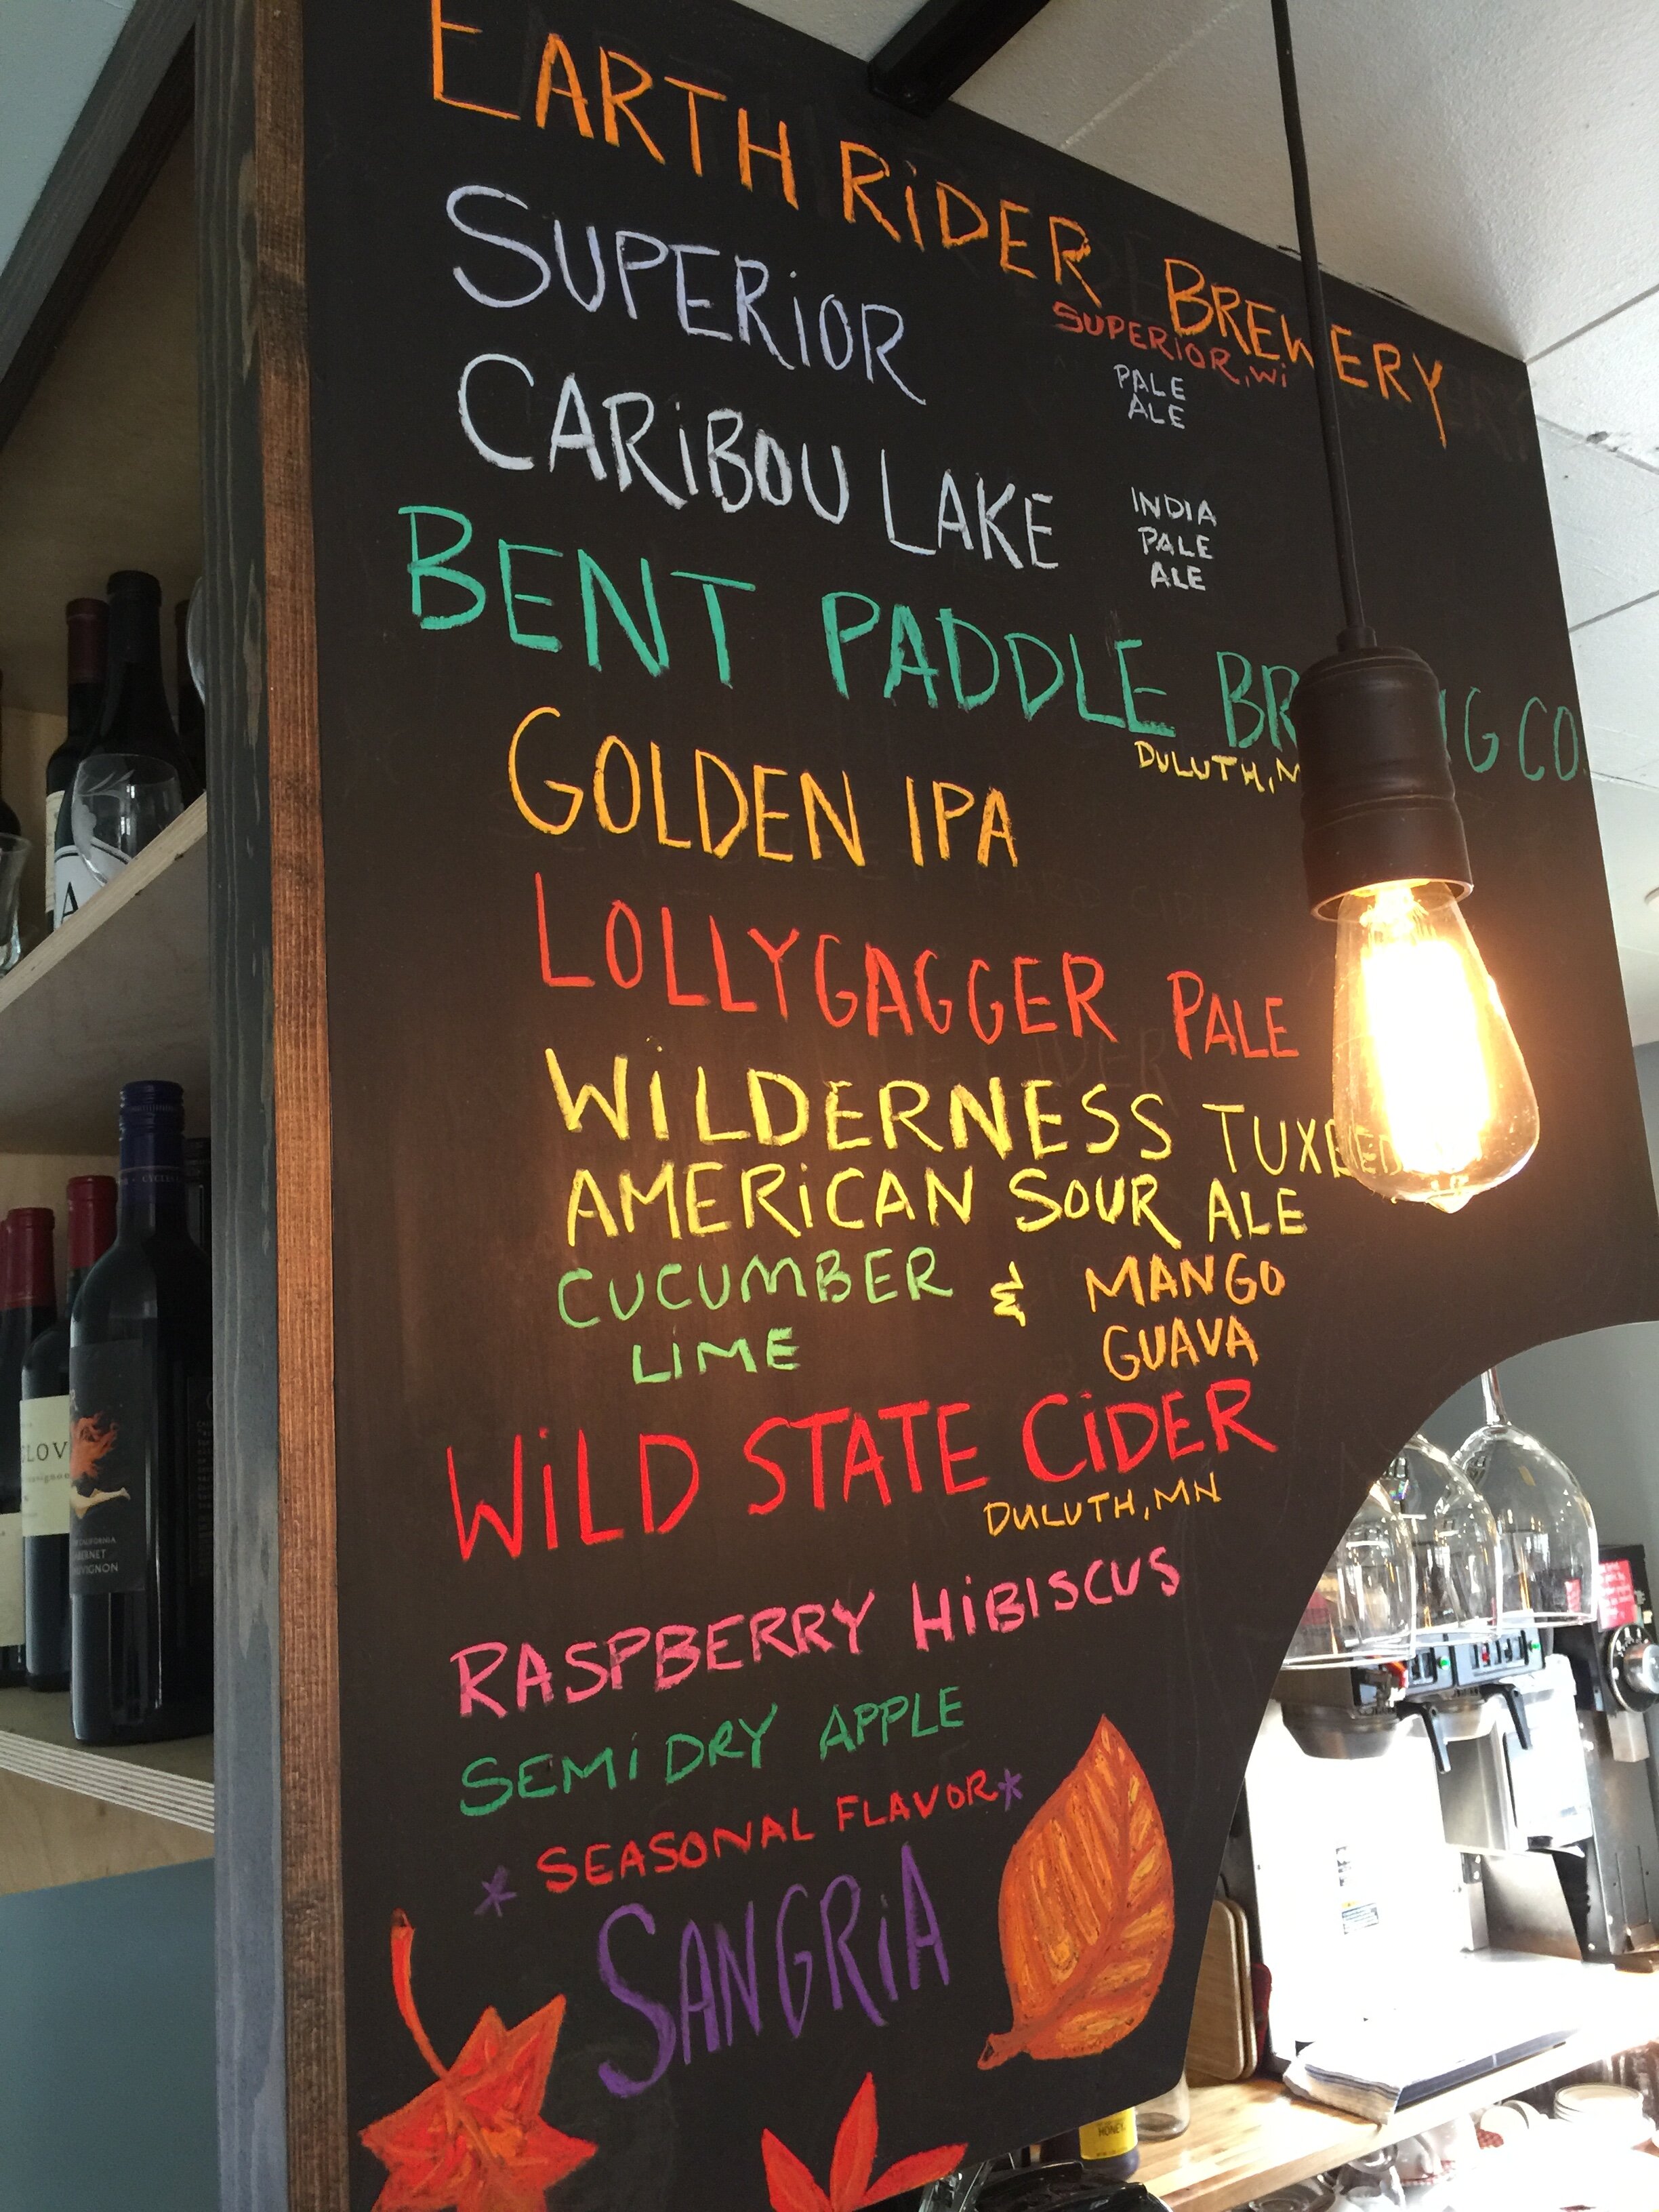 EARTH RiDER BREWERY
SUPERIOR, Wi
SUPERiOR
PALE
ALE
CARiBOU LAKE
INDIA
PALE
ALE
BENT PADDLE CO.
DULUTH,
GOLDEN IPA
LOLLYGAGGER PALE
WiLDERNESS TUXEDO
AMERiCAN SOUR ALE
CUCUMBER & MANGO
LiME GUAVA
WiLD STATE CiDER
DULUTH, MN
RASPBERRY HiBiSCUS
SEMi DRY APPLE
* SEASONAL FLAVOR *
SANGRiA
CALIFORNIA
HONEY